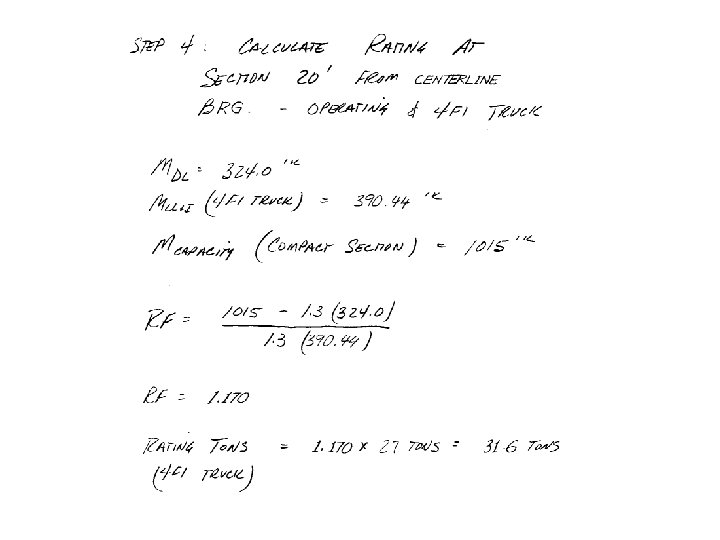 STEP 4: CALCULATE RATING AT
SECTION 20' FROM CENTERLINE
BRG. - OPERATING & 4F1 TRUCK
M DL = 324.0 'K
M LL+I (4F1 TRUCK) = 390.44 'K
M CAPACITY (COMPACT SECTION) = 1015 'K
RF = 1015 - 1.3 (324.0)
1.3 (390.44)
RF = 1.170
RATING TONS = 1.170 x 27 TONS = 31.6 TONS
(4F1 TRUCK)